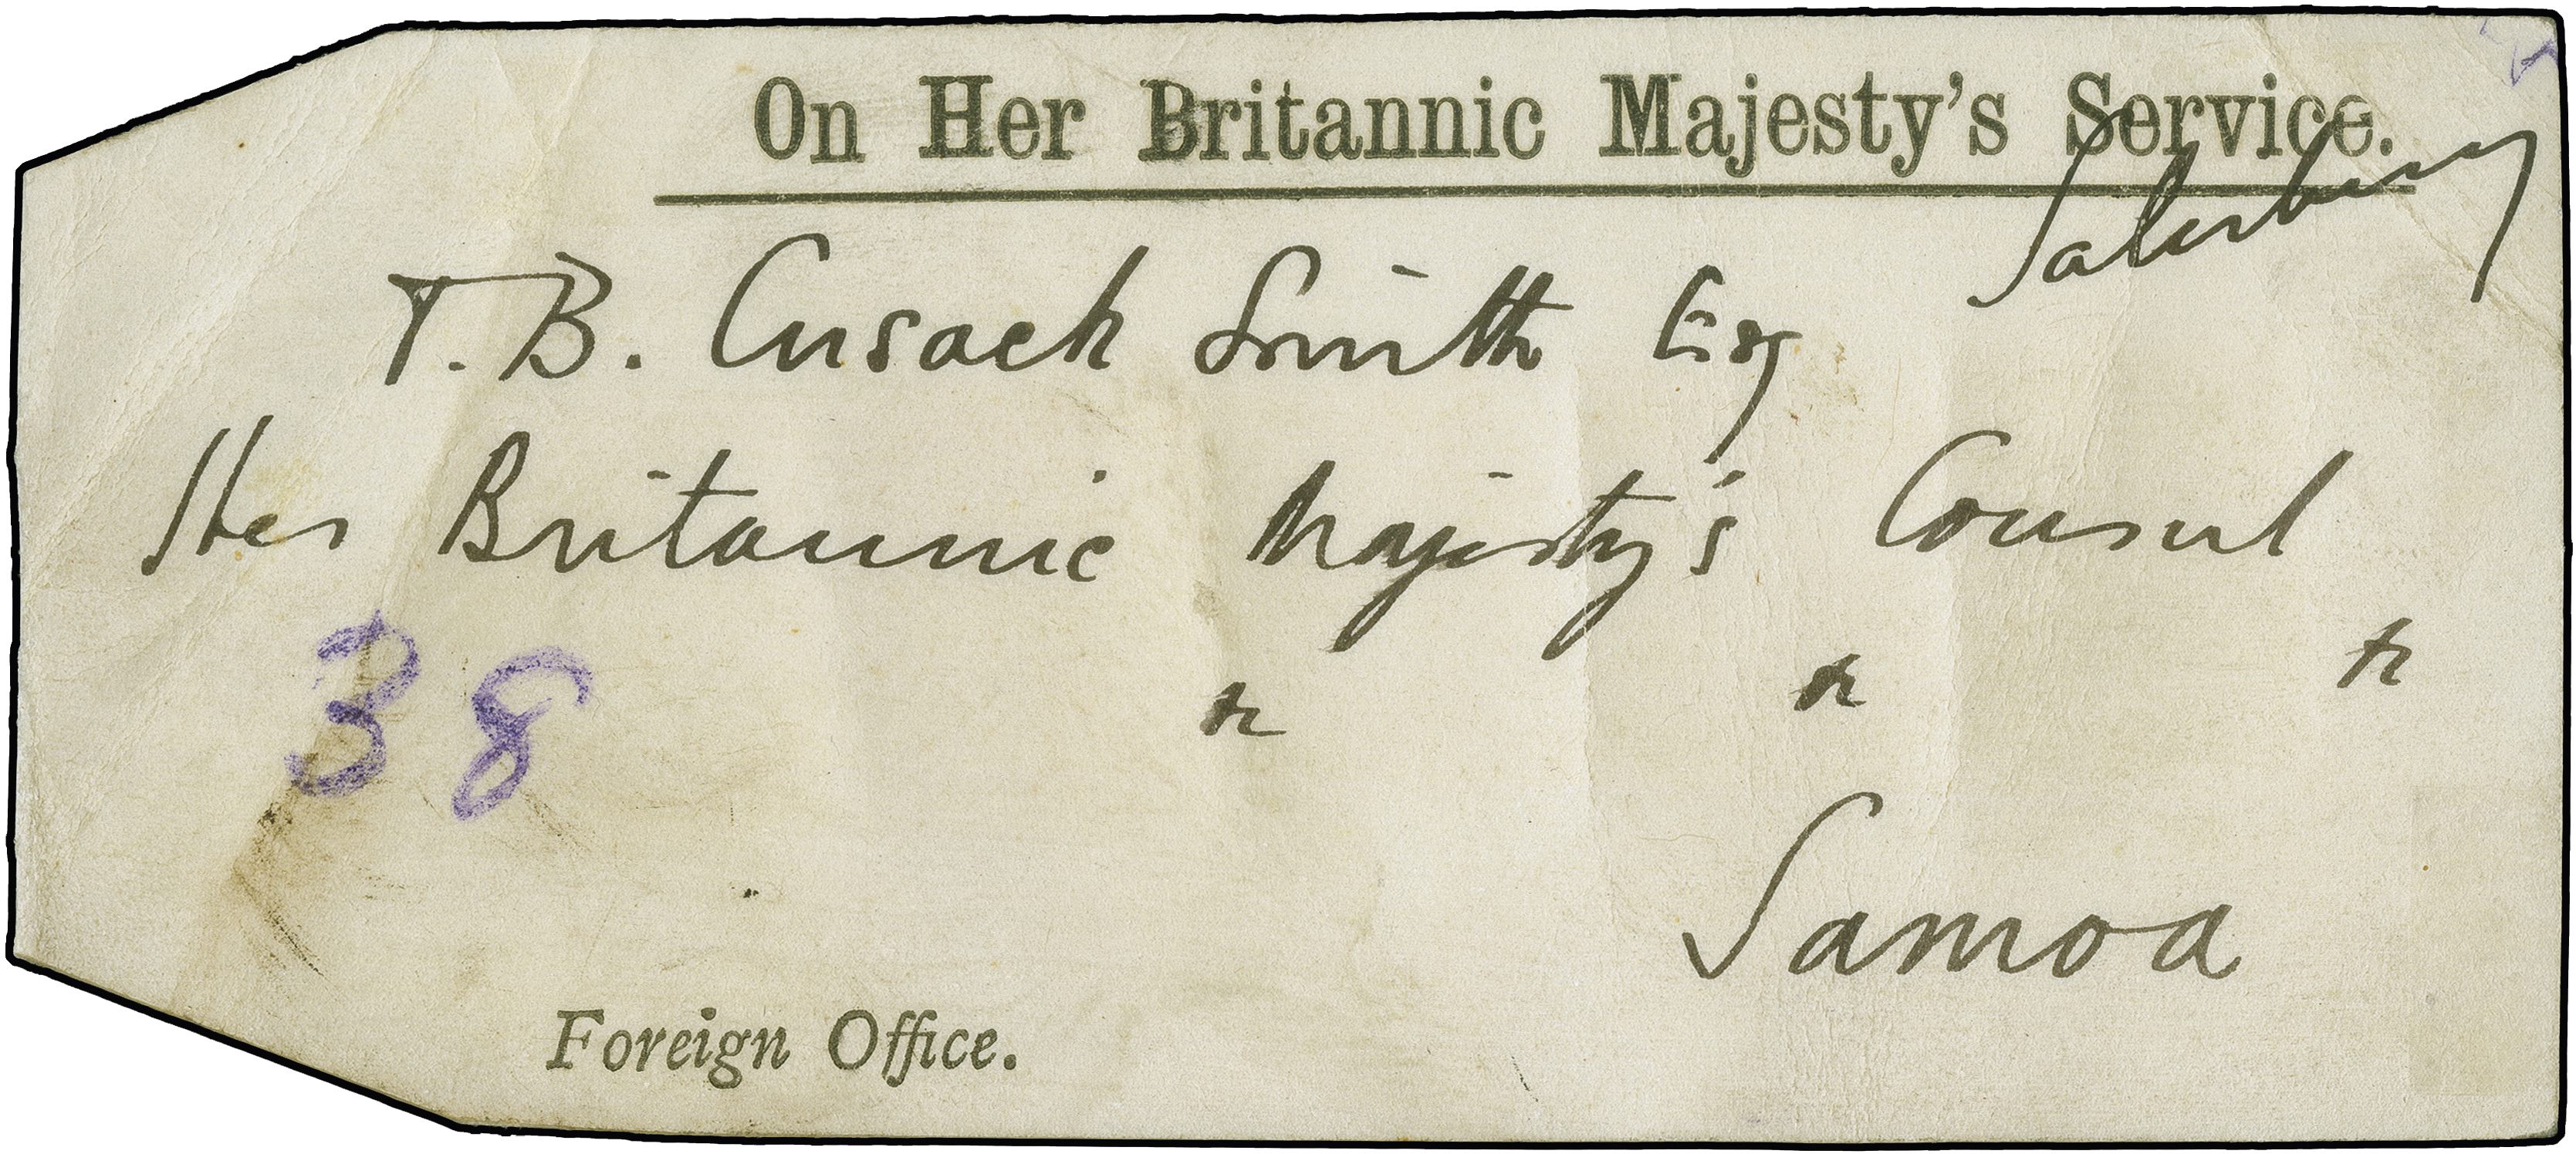 On Her Britannic Majesty's Service.
Salisbury
T. B. Cusack Smith Esq
Her Britannic Majesty's Consul
&c &c &c
38
Samoa
Foreign Office.